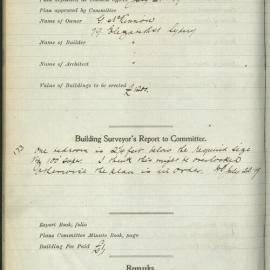 Plan approved by Committee "
Name of Owner G. McKinnon
79 Elizabeth St Sydney
Name of Builder "
Name of Architect "
Value of Buildings to be erected £1200.
Building Surveyor's Report to Committee.
One bedroom is 2¼ feet below the required size
100 super. I think this might be overlooked
otherwise the plan is in order. July 21. 19
Report Book, folio
Plans Committee Minute Book, page
Building Fee Paid
Remarks.